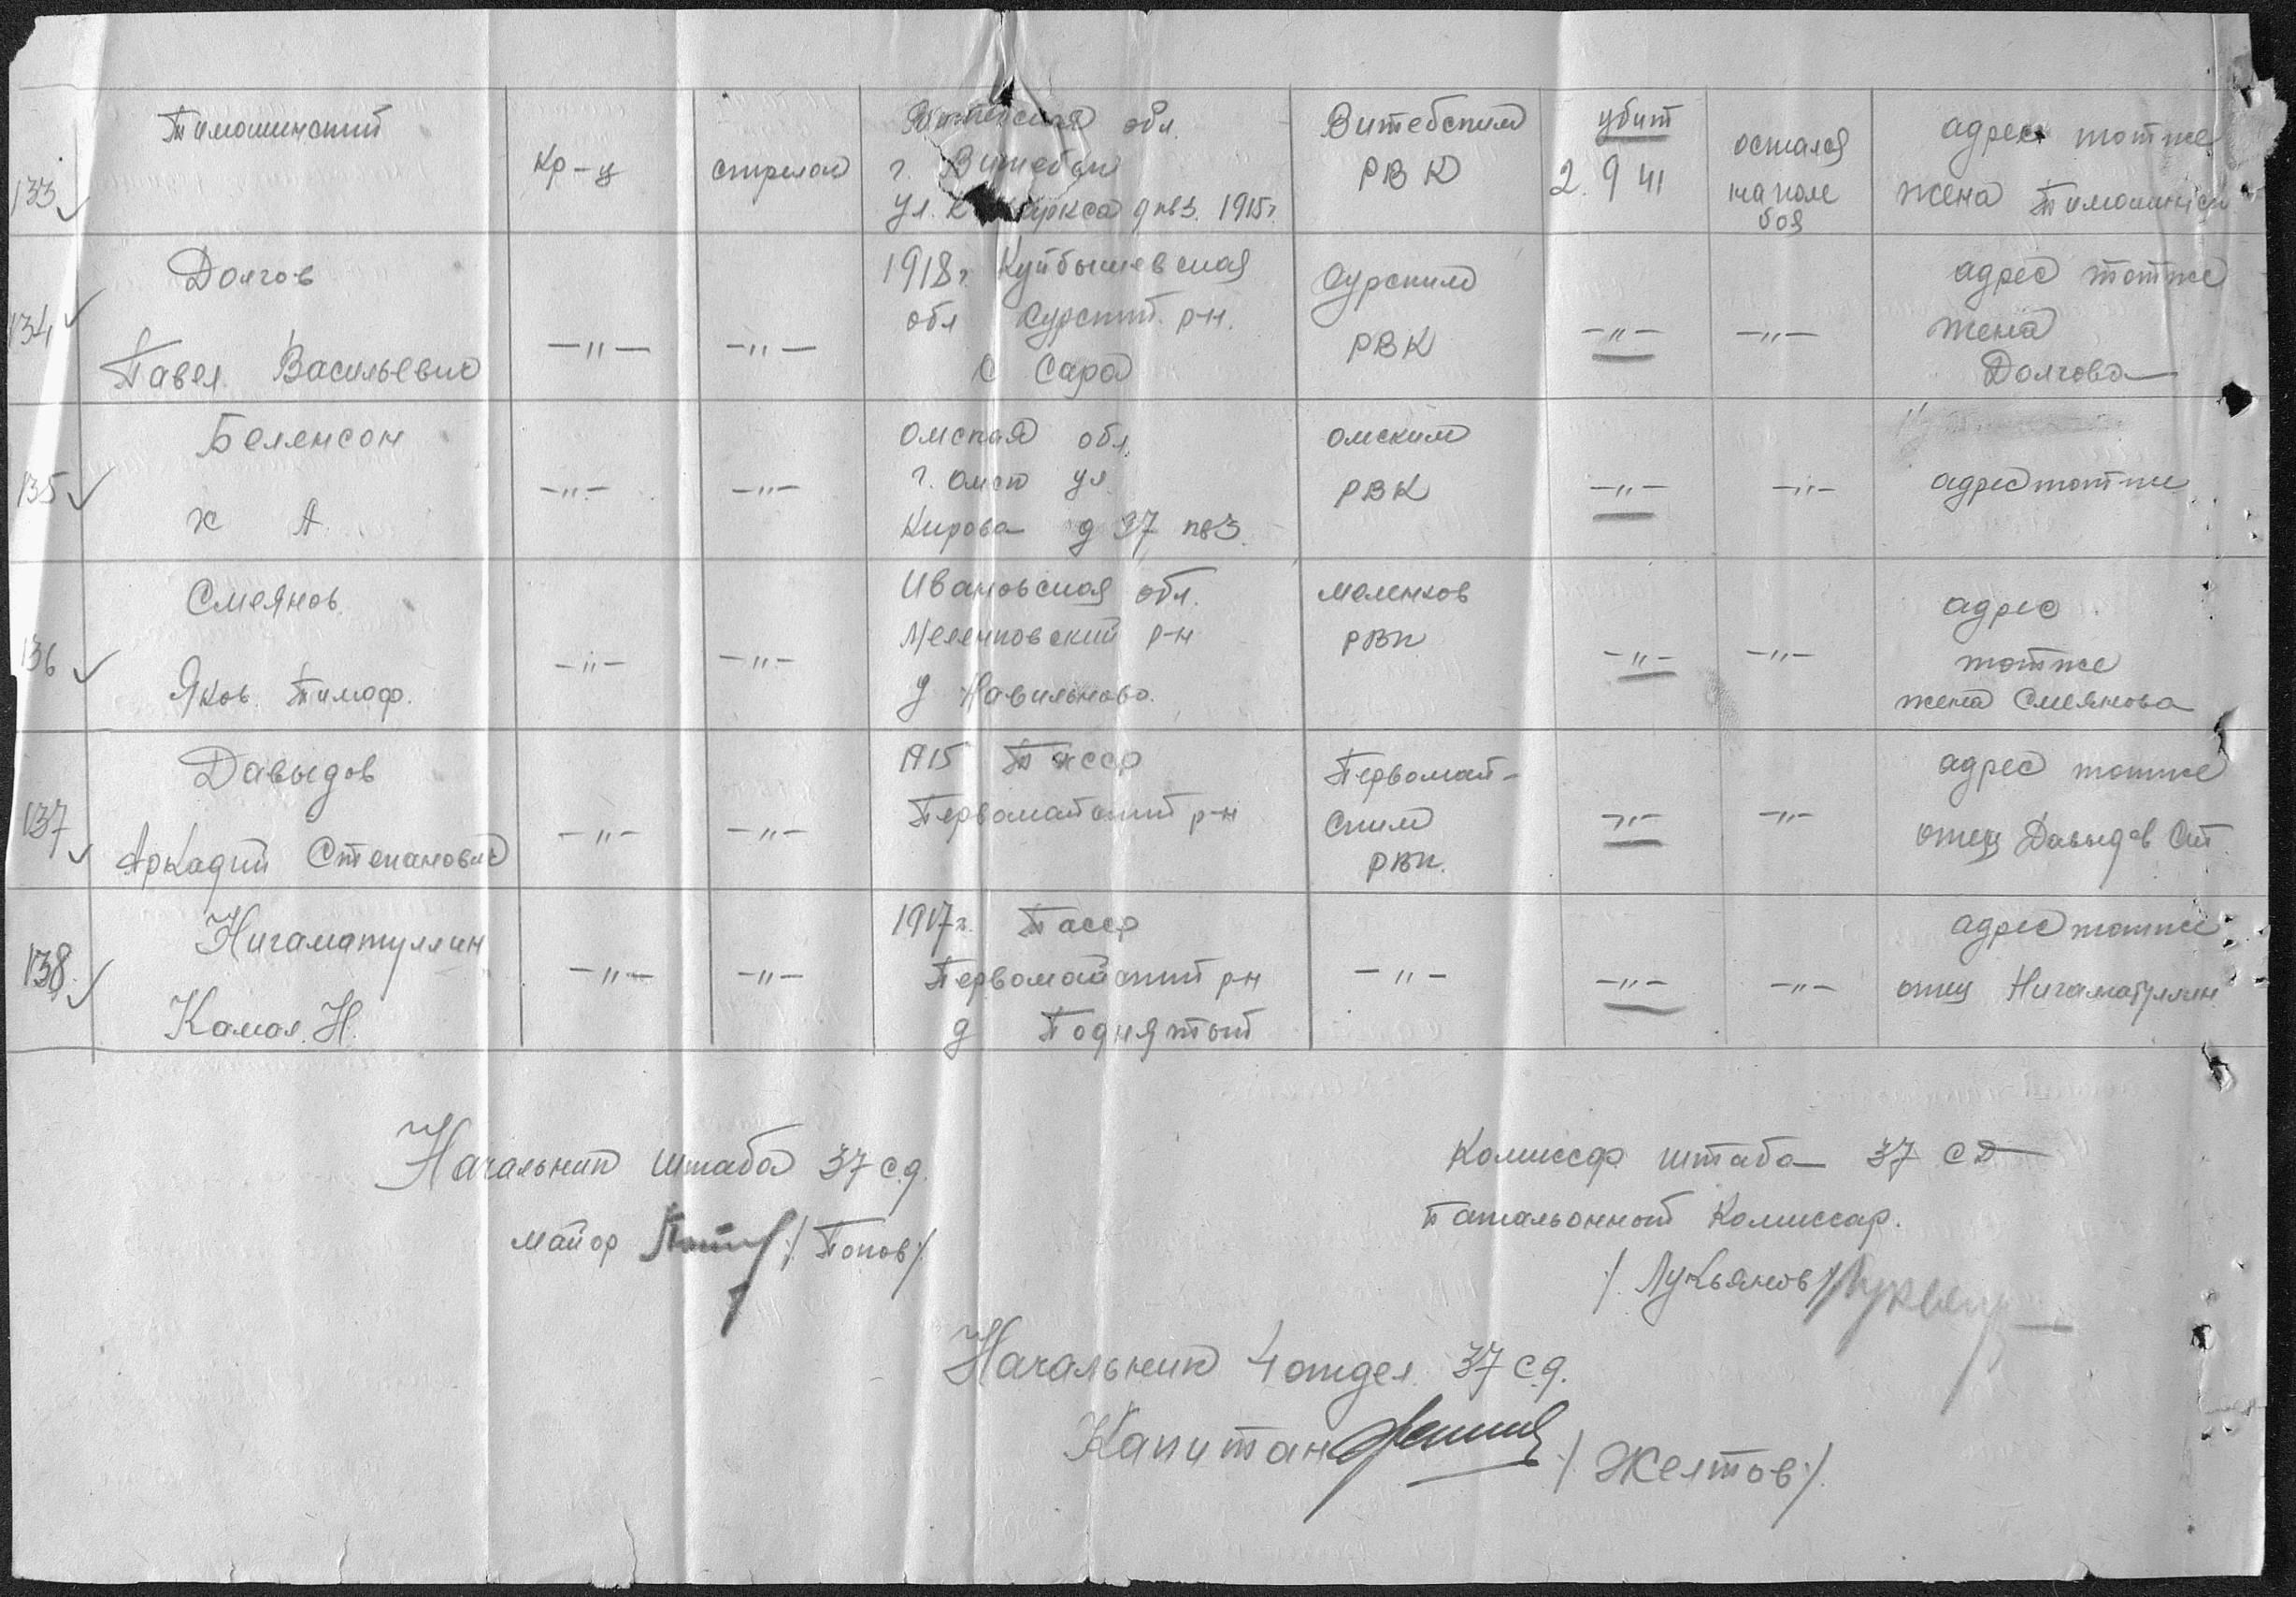 133 Тимошинский кр-ц стрелок Витебская обл. Витебским убит остался адрес тот же
г. Витебск РВК 2.9 41 на поле жена Тимошинск
ул. К Маркса д кв3. 1915г. боя
134 Долгов 1918г. Куйбышевская Сурским адрес тот же
обл Сурский р-н. РВК жена
Павел Васильевич —"— —"— с Сара —"— —"— Долгова
135 Беленсон Омская обл. Омским
г. Омск ул. РВК адрес тот же
Х А —"— —"— Кирова д 37 кв3. —"— —"—
136 Смеянов Ивановская обл. Меленков адрес
Меленковский р-н РВК тот же
Яков Тимоф. —"— —"— д —"— —"— жена Смеянова
137 Давыдов 1915 Тасср Первомай- адрес тот же
Первомайский р-н ским отец Давыдов Ст.
Аркадий Степанович —"— —"— РВК. —"— —"—
138 Нигаматуллин 1917г. Тасср адрес тот же
—"— —"— Первомайский р-н —"— —"— —"— отец Нигаматуллин
Камал. Н. д Поднятой
Начальник штаба 37 с.д.
майор /Попов/.
Комиссар штаба 37 СД
Батальонной Комиссар.
/Лукьянов/
Начальник 4 отдел. 37 с.д.
Капитан /Желтов/.